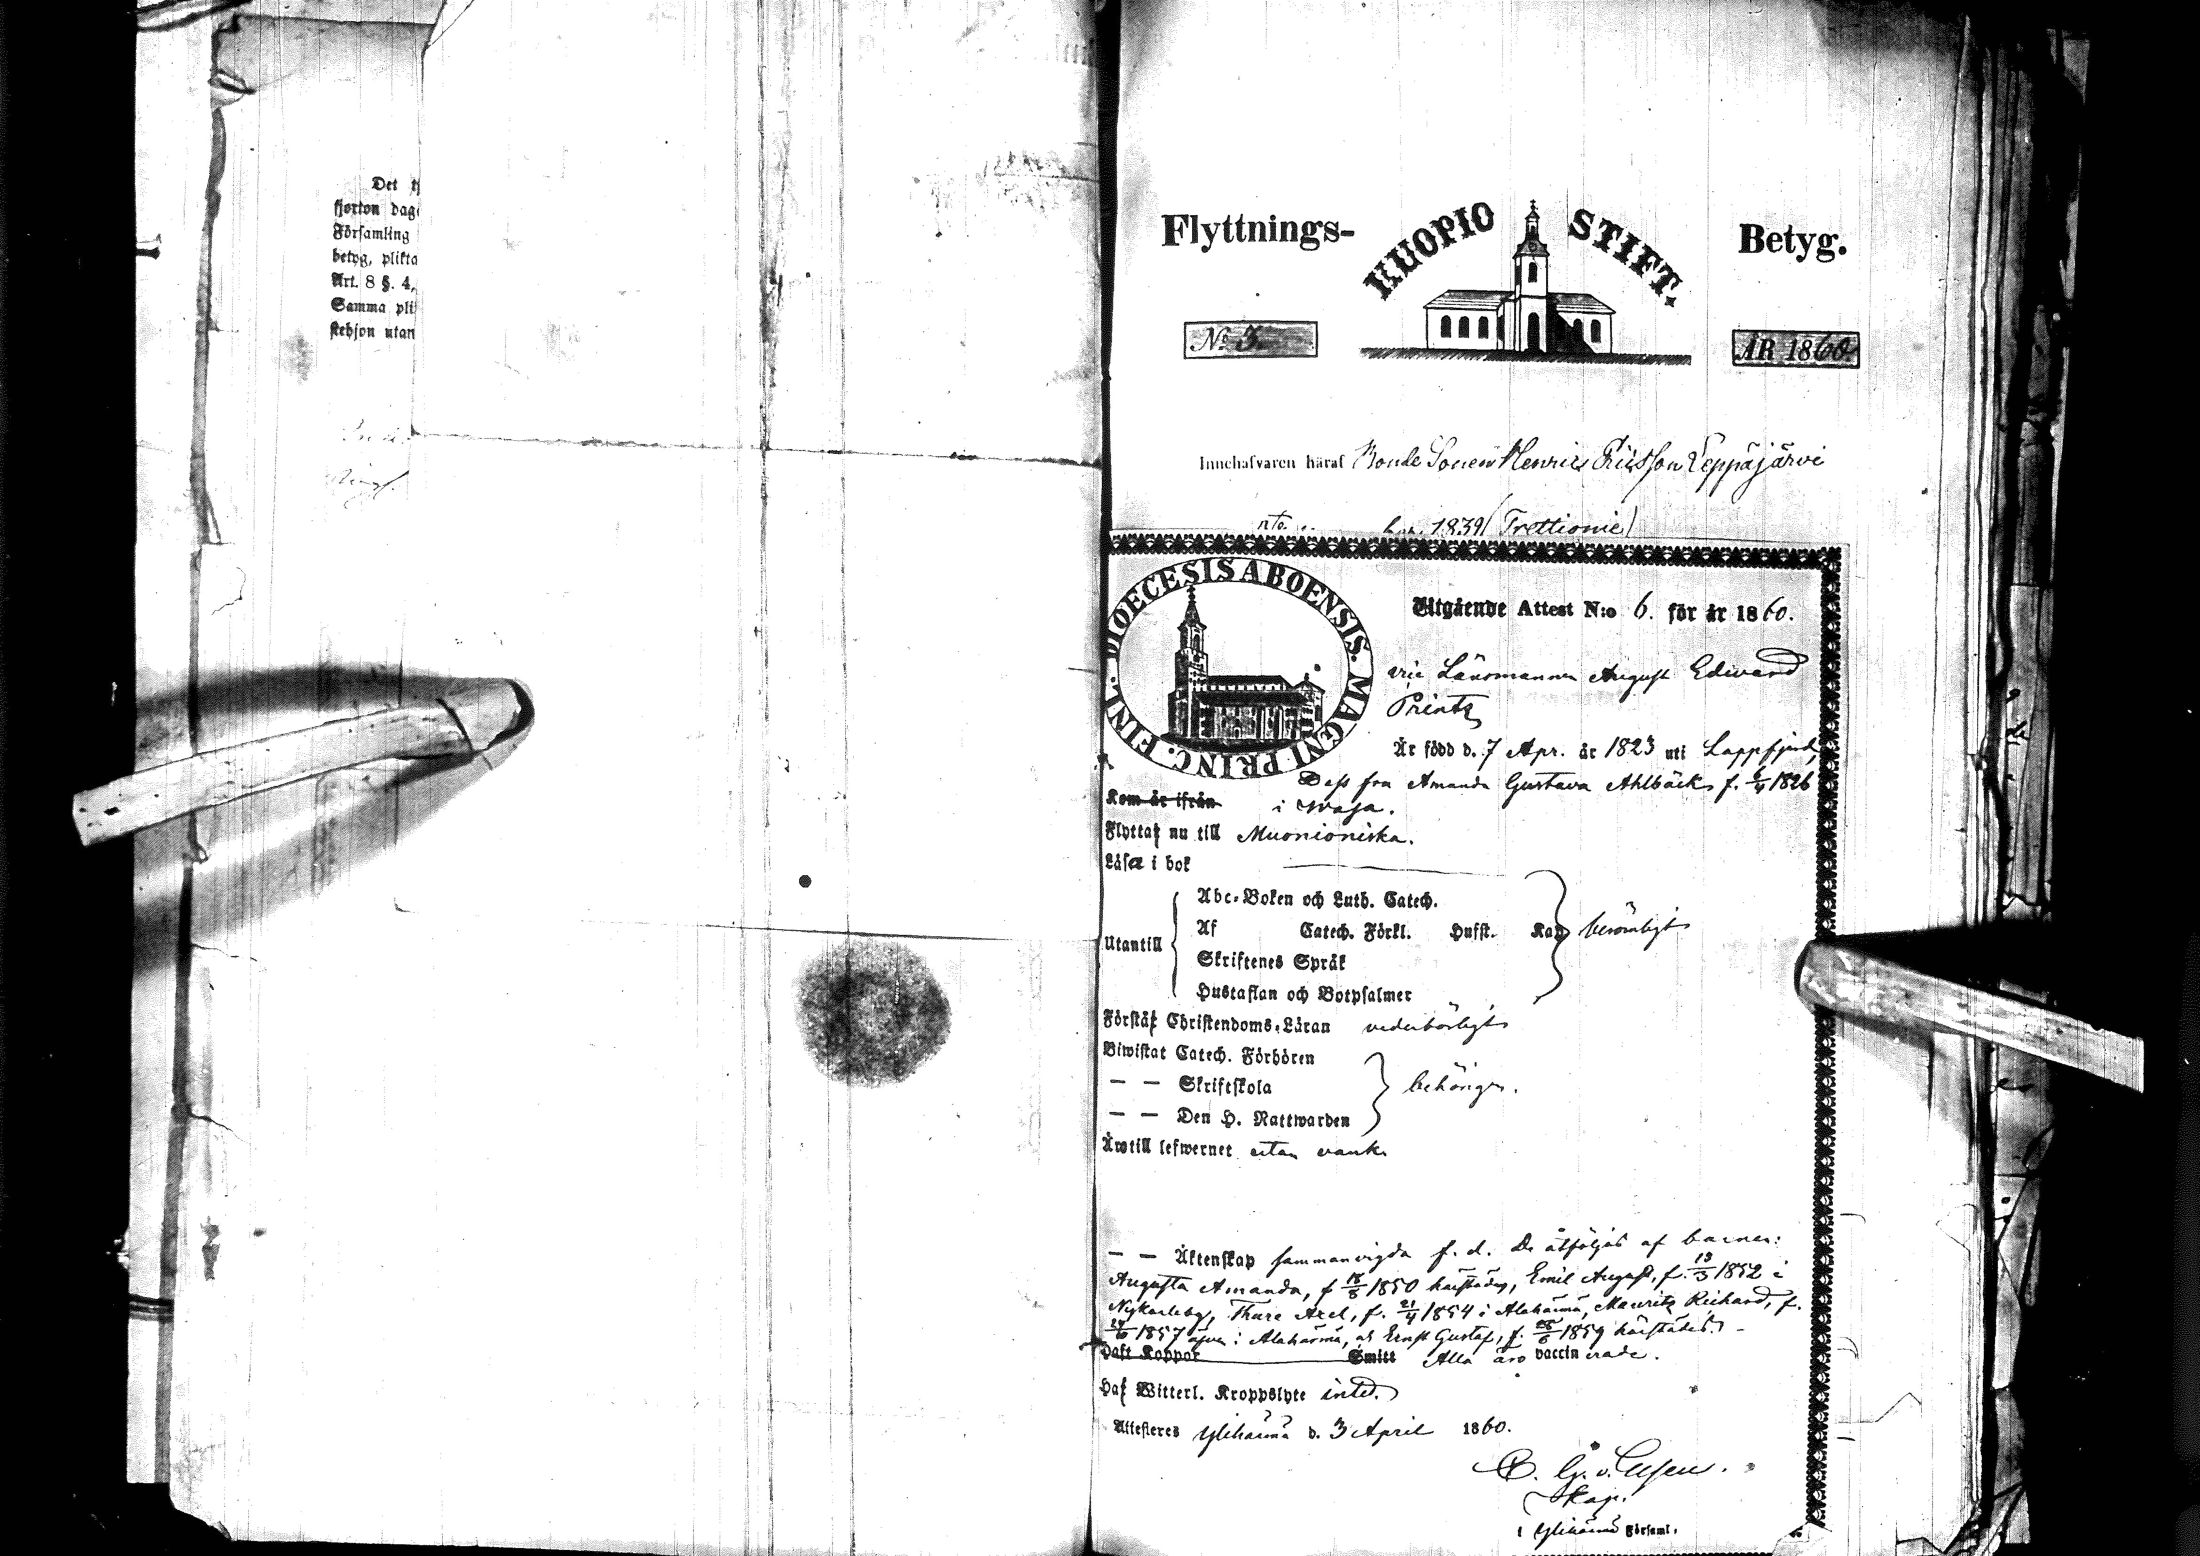 Det
fjorton dag
Församling
betyg, plikta
Art. 8 §. 4,
Samma pli
stedson utan
Flyttnings- KUOPIO STIFT. Betyg.
No 3. ÅR 1860.
Innehafvaren häraf Bonde Sonen Henric Ericsson Leppäjärvi
1839 (Trettionie)
DIOECESIS ABOENSIS. MAGNI PRINC. FINL.
Utgående Attest N:o 6. för år 1860.
Länsmannen August Edward
Printz
Är född d. 7 Apr. år 1823 uti Lappfjerd,
Dess fru Amanda Gustava Ahlbäck f. 6/4 1826
Kom är ifrån i Wasa.
Flyttar nu till Muonioniska.
Läsa i bok
Abc-Boken och Luth. Catech.
Af Catech. Förkl. Husst. Kap berömligt
Utantill
Skriftenes Språk
Hustaflan och Botpsalmer
Förstår Christendoms-Läran vederbörligt
Biwistat Catech. Förhören
— — Skriftskola behörigen.
— — Den H. Nattwarden
Äro till lefwernet utan vank
— — Äktenskap sammanvigda f. d. De åtföljas af barnen:
Augusta Amanda, f 18/8 1850 härstädes, Emil August, f. 13/3 1852 i
Nykarleby, Thure Axel, f. 21/4 1854 i Alahärmä, Mauritz Richard, f.
1857 äfven i Alahärmä, och Ernst Gustaf, f. 1859 härstädes.
Haft Koppor Smitt Alla äro vaccinerade.
Har Witterl. Kroppslyte intet.
Attesteres Ylihärmä d. 3 April 1860.
Kap.
i Ylihärmä Församl.